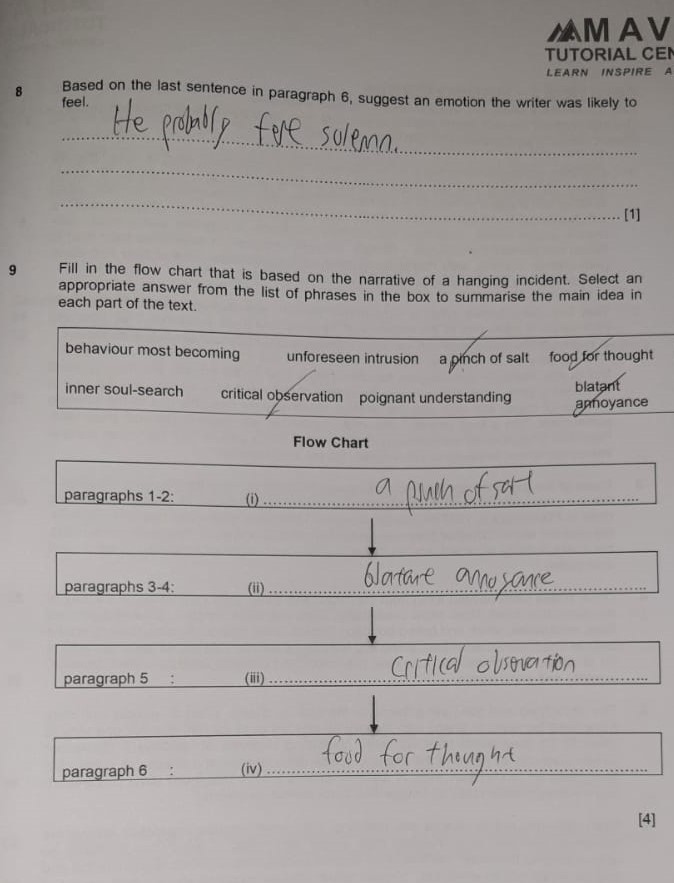 MAV
TUTORIAL CEN
LEARN INSPIRE A
8 Based on the last sentence in paragraph 6, suggest an emotion the writer was likely to
feel.
He probably fele solemn.
[1]
9 Fill in the flow chart that is based on the narrative of a hanging incident. Select an
appropriate answer from the list of phrases in the box to summarise the main idea in
each part of the text.
behaviour most becoming unforeseen intrusion a pinch of salt food for thought
inner soul-search critical observation poignant understanding blatant
annoyance
Flow Chart
paragraphs 1-2: (i) a pinch of salt
paragraphs 3-4: (ii) blatant annoyance
paragraph 5 : (iii) critical observation
paragraph 6 : (iv) food for thought
[4]